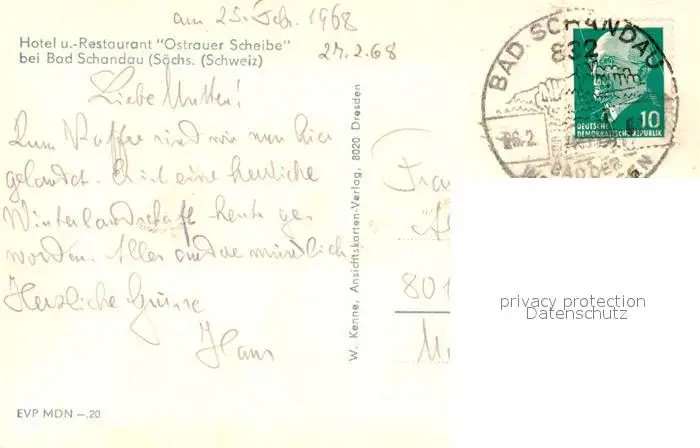 am 25. Febr. 1968
Hotel u.-Restaurant "Ostrauer Scheibe"
bei Bad Schandau (Sächs. (Schweiz)
27.2.68
Liebe Mutter!
Zum Kaffee sind wir nun hier
gelandet. Es ist eine herrliche
Winterlandschaft heute ge
worden. Alles andere mündlich
Herzliche Grüsse
Hans
EVP MDN –.20
W. Kenne, Ansichtskarten-Verlag, 8020 Dresden
BAD SCHANDAU
832
26.2
BAD DER
10
DEUTSCHE
DEMOKRATISCHE REPUBLIK
801
privacy protection
Datenschutz